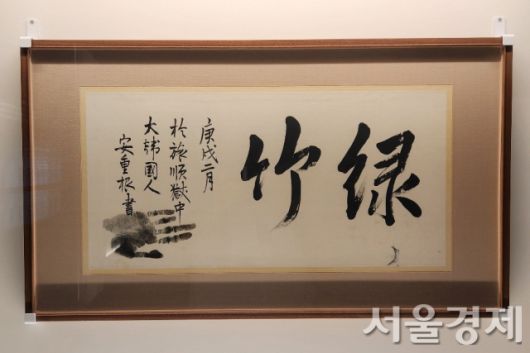 綠竹
庚戌二月
於旅順獄中
大韓國人
安重根書
서울경제